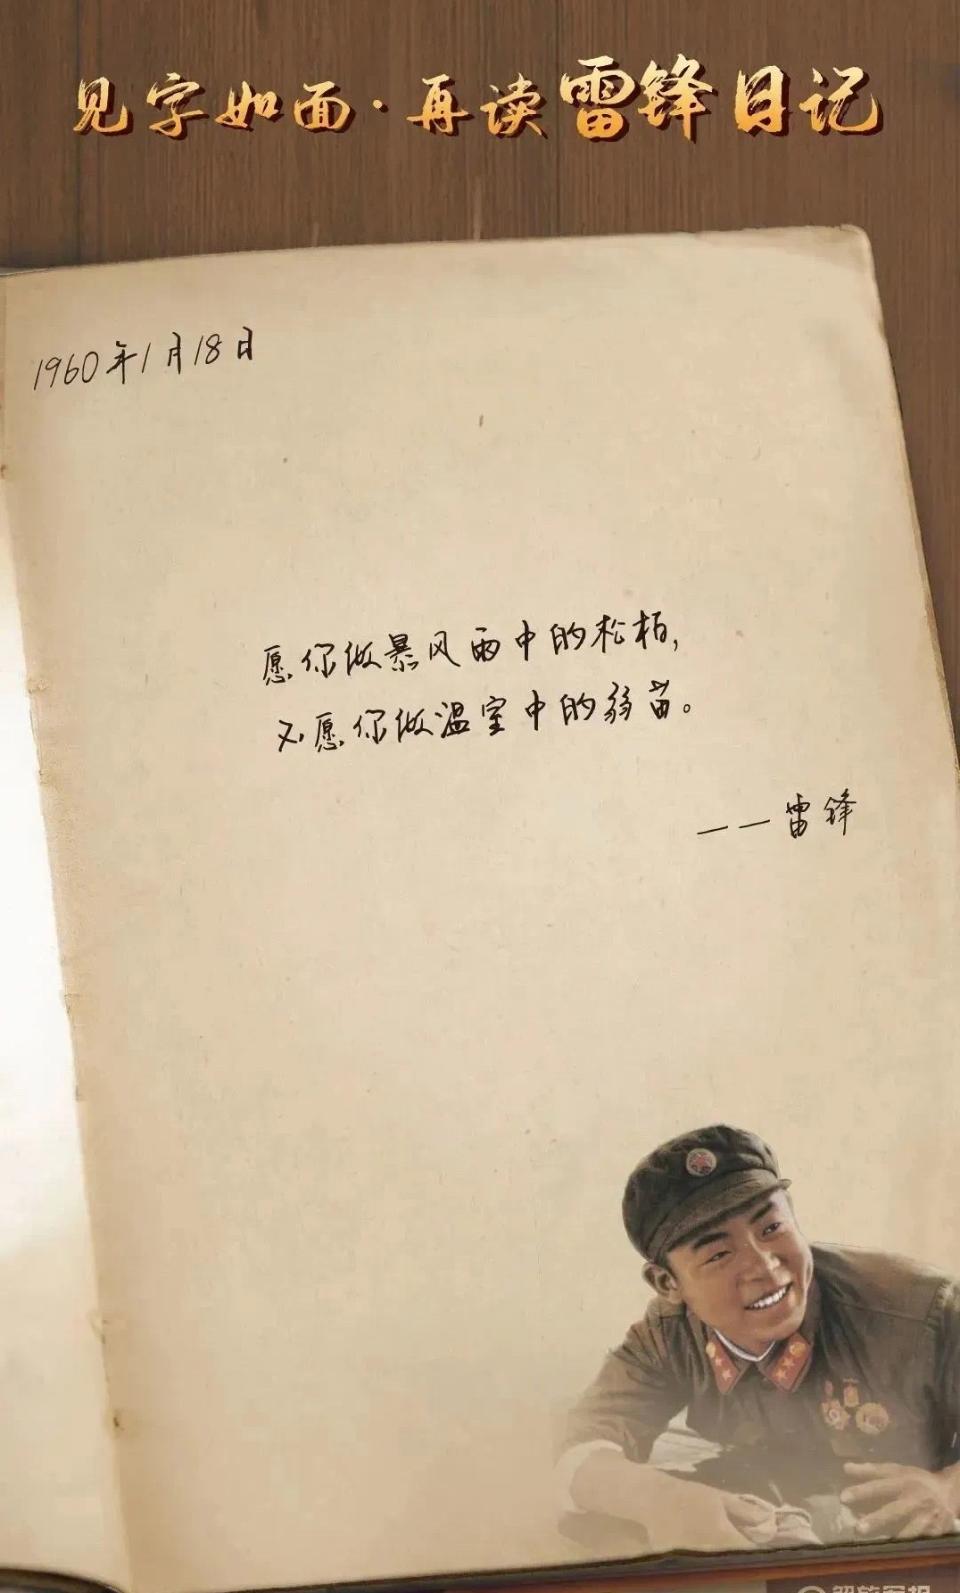 见字如面·再读雷锋日记
1960年1月18日
愿你做暴风雨中的松柏,
不愿你做温室中的弱苗。
——雷锋